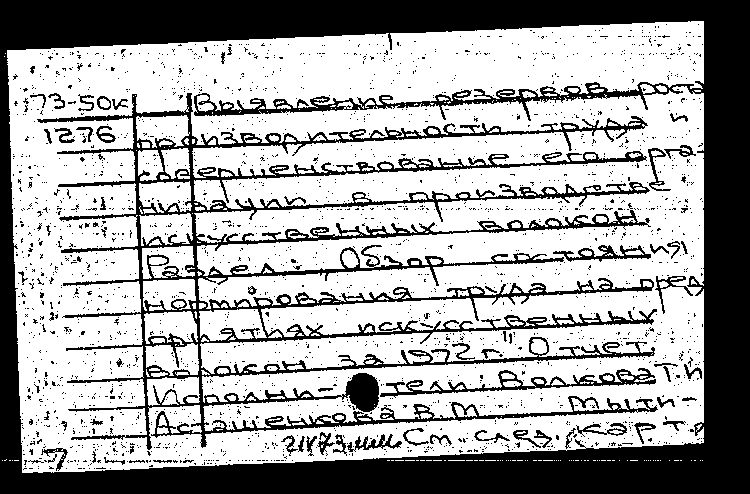 73-50к Выявление резервов роста
1276 производительности труда и
совершенствование его орга-
низации в производстве
искусственных волокон.
Раздел: „Обзор состояния
нормирования труда на пред
приятиях искусственных
волокон за 1972 г." Отчет.
Исполни- тели: Волкова Т. И
Асташенкова В. М Мыти-
21V73 См. след. карт.
7